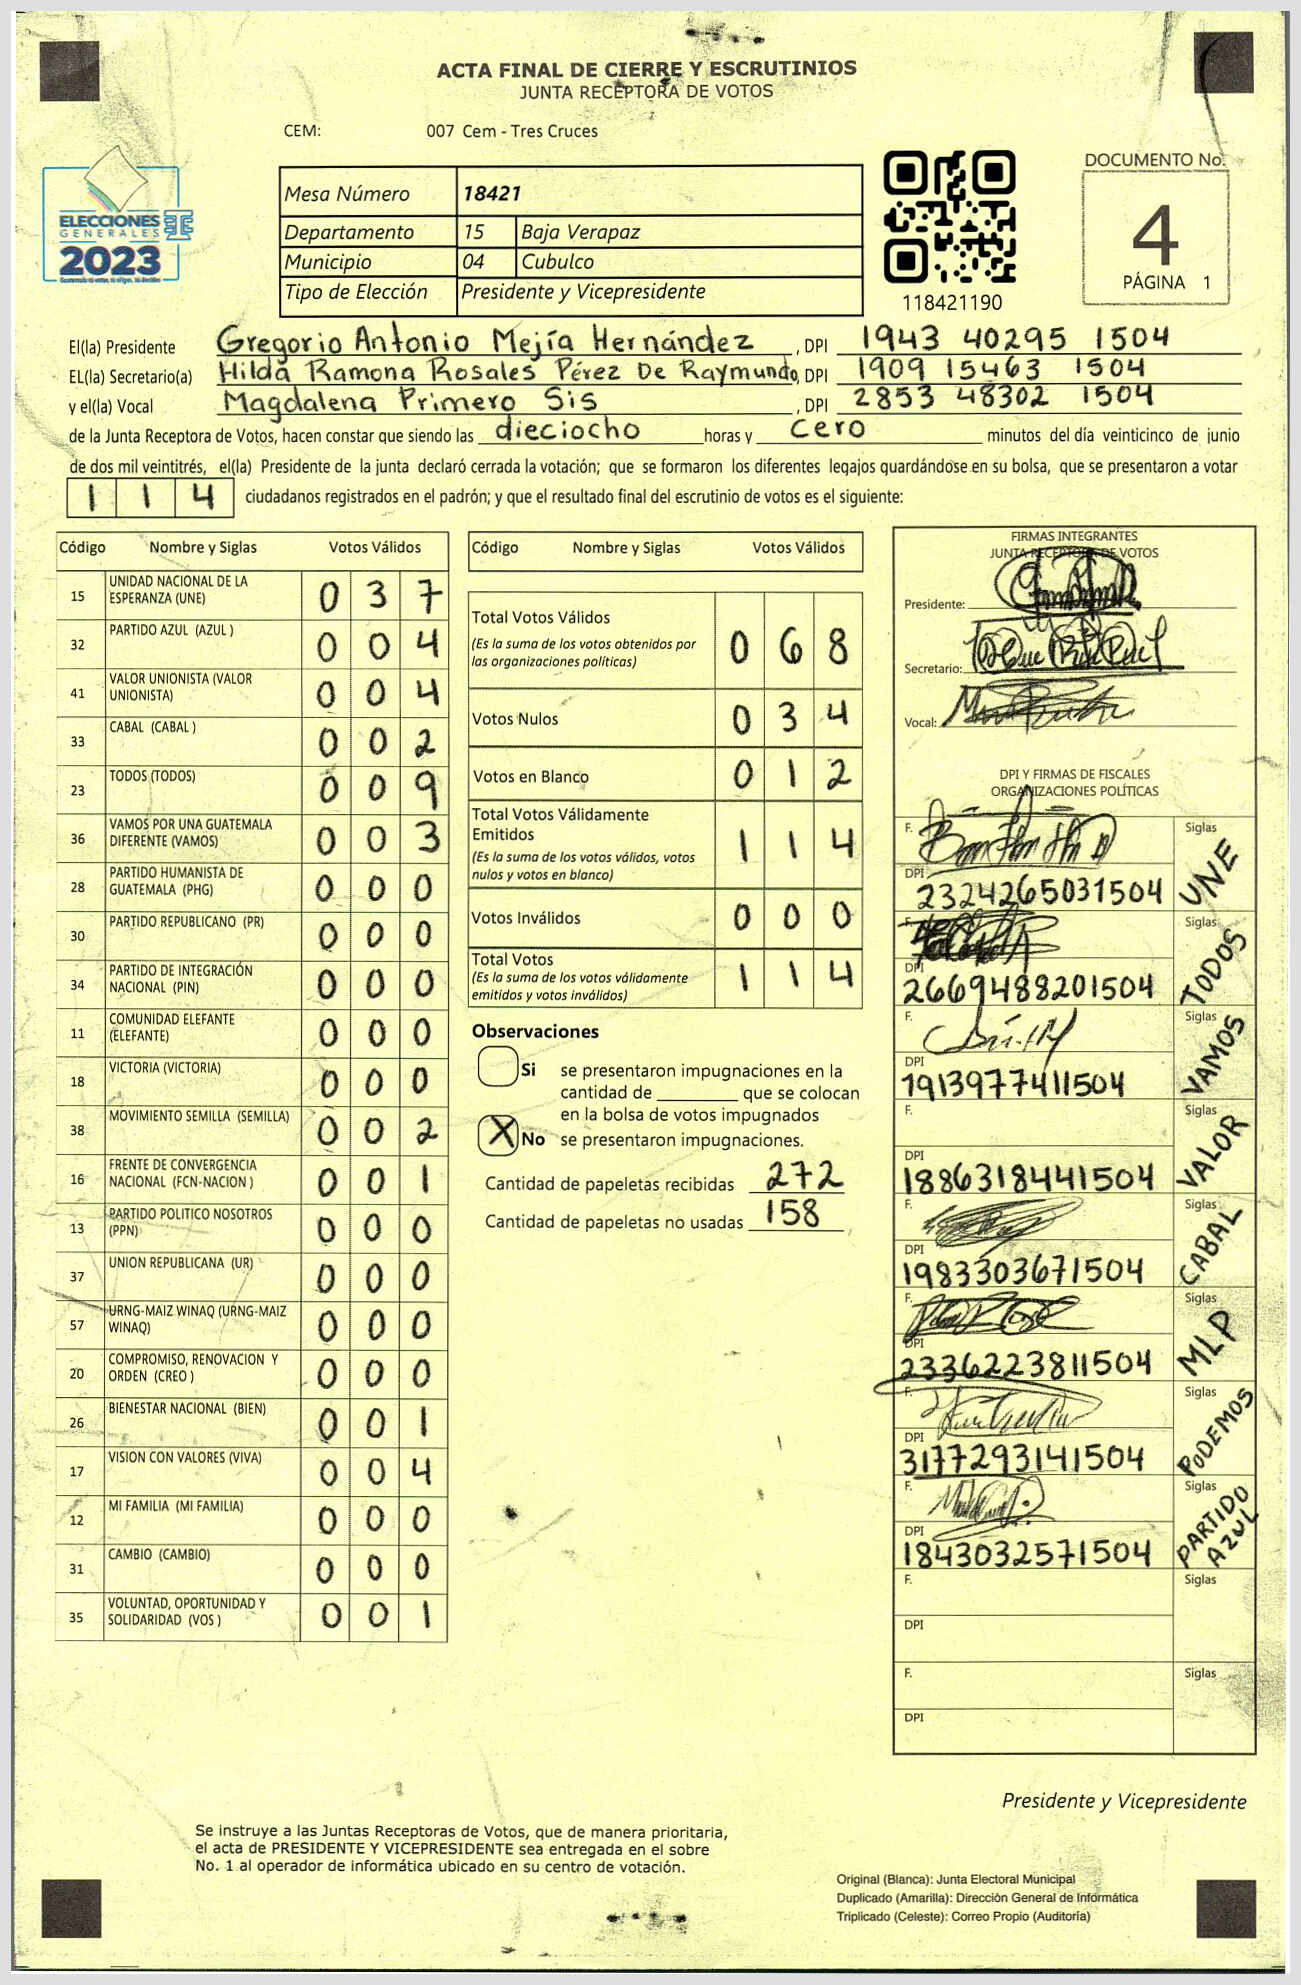 ACTA FINAL DE CIERRE Y ESCRUTINIOS
JUNTA RECEPTORA DE VOTOS
CEM: 007 Cem - Tres Cruces
ELECCIONES
GENERALES
2023
Mesa Número 18421
Departamento 15 Baja Verapaz
Municipio 04 Cubulco
Tipo de Elección Presidente y Vicepresidente
118421190
DOCUMENTO No.
4
PÁGINA 1
El(la) Presidente Gregorio Antonio Mejía Hernández, DPI 1943 40295 1504
EL(la) Secretario(a) Hilda Ramona Rosales Pérez De Raymundo, DPI 1909 15463 1504
y el(la) Vocal Magdalena Primero Sis, DPI 2853 48302 1504
de la Junta Receptora de Votos, hacen constar que siendo las dieciocho horas y cero minutos del día veinticinco de junio
de dos mil veintitrés, el(la) Presidente de la junta declaró cerrada la votación; que se formaron los diferentes legajos quardándose en su bolsa, que se presentaron a votar
1 1 4 ciudadanos registrados en el padrón; y que el resultado final del escrutinio de votos es el siguiente:
Código Nombre y Siglas Votos Válidos
15 UNIDAD NACIONAL DE LA ESPERANZA (UNE) 0 3 7
32 PARTIDO AZUL (AZUL ) 0 0 4
41 VALOR UNIONISTA (VALOR UNIONISTA) 0 0 4
33 CABAL (CABAL ) 0 0 2
23 TODOS (TODOS) 0 0 9
36 VAMOS POR UNA GUATEMALA DIFERENTE (VAMOS) 0 0 3
28 PARTIDO HUMANISTA DE GUATEMALA (PHG) 0 0 0
30 PARTIDO REPUBLICANO (PR) 0 0 0
34 PARTIDO DE INTEGRACIÓN NACIONAL (PIN) 0 0 0
11 COMUNIDAD ELEFANTE (ELEFANTE) 0 0 0
18 VICTORIA (VICTORIA) 0 0 0
38 MOVIMIENTO SEMILLA (SEMILLA) 0 0 2
16 FRENTE DE CONVERGENCIA NACIONAL (FCN-NACION ) 0 0 1
13 PARTIDO POLITICO NOSOTROS (PPN) 0 0 0
37 UNION REPUBLICANA (UR) 0 0 0
57 URNG-MAIZ WINAQ (URNG-MAIZ WINAQ) 0 0 0
20 COMPROMISO, RENOVACION Y ORDEN (CREO ) 0 0 0
26 BIENESTAR NACIONAL (BIEN) 0 0 1
17 VISION CON VALORES (VIVA) 0 0 4
12 MI FAMILIA (MI FAMILIA) 0 0 0
31 CAMBIO (CAMBIO) 0 0 0
35 VOLUNTAD, OPORTUNIDAD Y SOLIDARIDAD (VOS ) 0 0 1
Código Nombre y Siglas Votos Válidos
Total Votos Válidos 0 6 8
(Es la suma de los votos obtenidos por
las organizaciones políticas)
Votos Nulos 0 3 4
Votos en Blanco 0 1 2
Total Votos Válidamente
Emitidos 1 1 4
(Es la suma de los votos válidos, votos
nulos y votos en blanco)
Votos Inválidos 0 0 0
Total Votos 1 1 4
(Es la suma de los votos válidamente
emitidos y votos inválidos)
Observaciones
Si se presentaron impugnaciones en la
cantidad de ________ que se colocan
en la bolsa de votos impugnados
X No se presentaron impugnaciones.
Cantidad de papeletas recibidas 272
Cantidad de papeletas no usadas 158
FIRMAS INTEGRANTES
JUNTA RECEPTORA DE VOTOS
Presidente:
Secretario:
Vocal:
DPI Y FIRMAS DE FISCALES
ORGANIZACIONES POLÍTICAS
F. Siglas UNE
DPI 2324265031504
F. Siglas TODOS
DPI 2669488201504
F. Siglas VAMOS
DPI 1913977411504
F. Siglas VALOR
DPI 1886318441504
F. Siglas CABAL
DPI 1983303671504
F. Siglas MLP
DPI 2336223811504
F. Siglas PODEMOS
DPI 3177293141504
F. Siglas PARTIDO AZUL
DPI 1843032571504
F. Siglas
DPI
F. Siglas
DPI
Presidente y Vicepresidente
Se instruye a las Juntas Receptoras de Votos, que de manera prioritaria,
el acta de PRESIDENTE Y VICEPRESIDENTE sea entregada en el sobre
No. 1 al operador de informática ubicado en su centro de votación.
Original (Blanca): Junta Electoral Municipal
Duplicado (Amarilla): Dirección General de Informática
Triplicado (Celeste): Correo Propio (Auditoría)